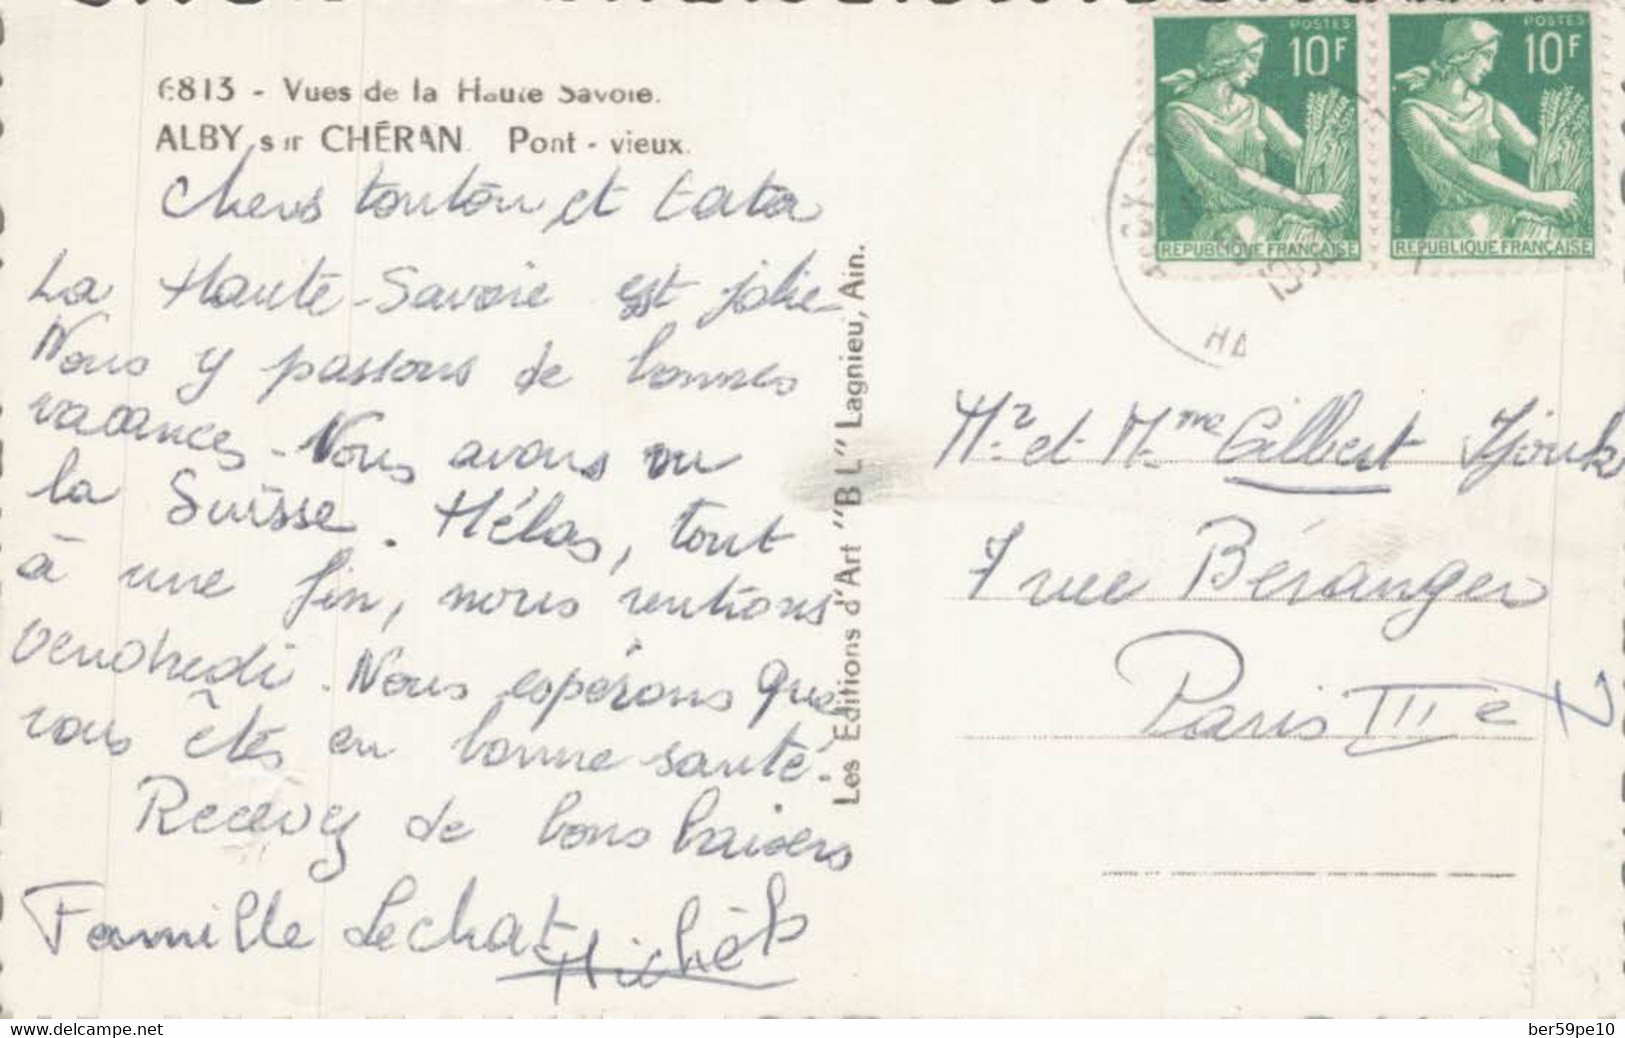 6813 - Vues de la Haute Savoie.
ALBY sur CHÉRAN. Pont - vieux.
Chers tonton et tata
La Haute-Savoie est jolie
Nous y passons de bonnes
vacances. Nous avons vu
la Suisse. Hélas, tout
à une fin, nous rentrons
vendredi. Nous espérons que
vous êtes en bonne santé.
Recevez de bons baisers
Famille Lechat
Michèle
Les Editions d'Art "B L" Lagnieu, Ain.
POSTES
10F
REPUBLIQUE FRANÇAISE
POSTES
10F
REPUBLIQUE FRANÇAISE
Mr et Mme Gilbert
7 rue Béranger
Paris IIIe
delcampe.net
ber59pe10